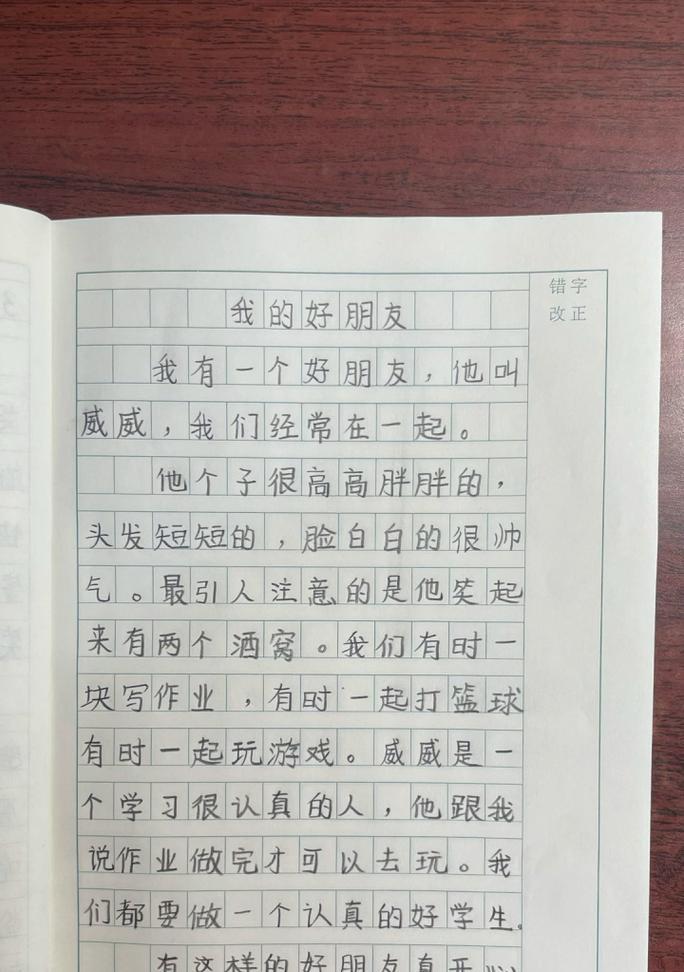 错字
改正
我的好朋友
我有一个好朋友，他叫
威威，我们经常在一起。
他个子很高高胖胖的，
头发短短的，脸白白的很帅
气。最引人注意的是他笑起
来有两个酒窝。我们有时一
块写作业，有时一起打篮球
有时一起玩游戏。威威是一
个学习很认真的人，他跟我
说作业做完才可以去玩。我
们都要做一个认真的好学生。
有这样的好朋友真开心